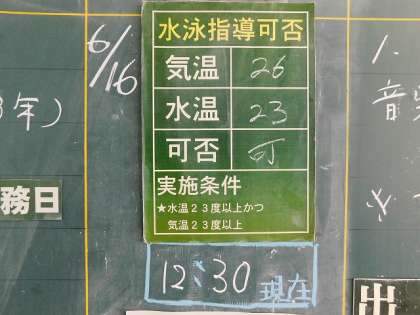 6/16
3年)
務日
水泳指導可否
気温 26
水温 23
可否 可
実施条件
★水温23度以上かつ
気温23度以上
12:30 現在
1.
音
出